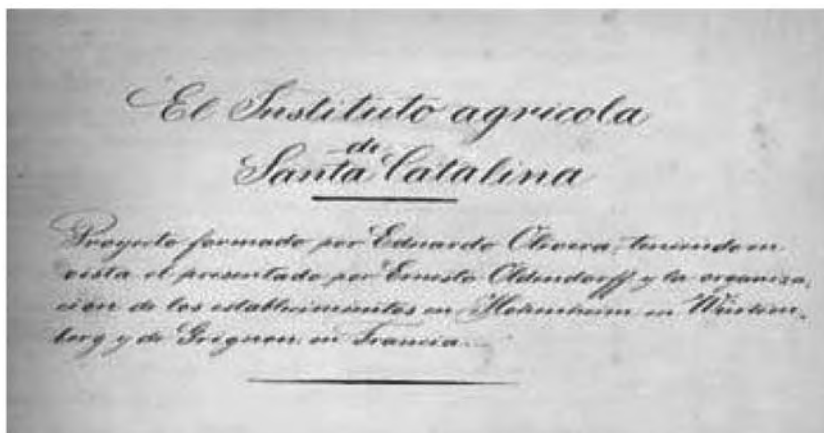 El Instituto agricola
de
Santa Catalina
Proyecto formado por Eduardo Olivera, teniendo en
vista el presentado por Ernesto Oldendorff y la organiza-
cion de los establecimientos en Hohenheim en Wurtem-
berg y de Grignon en Francia.